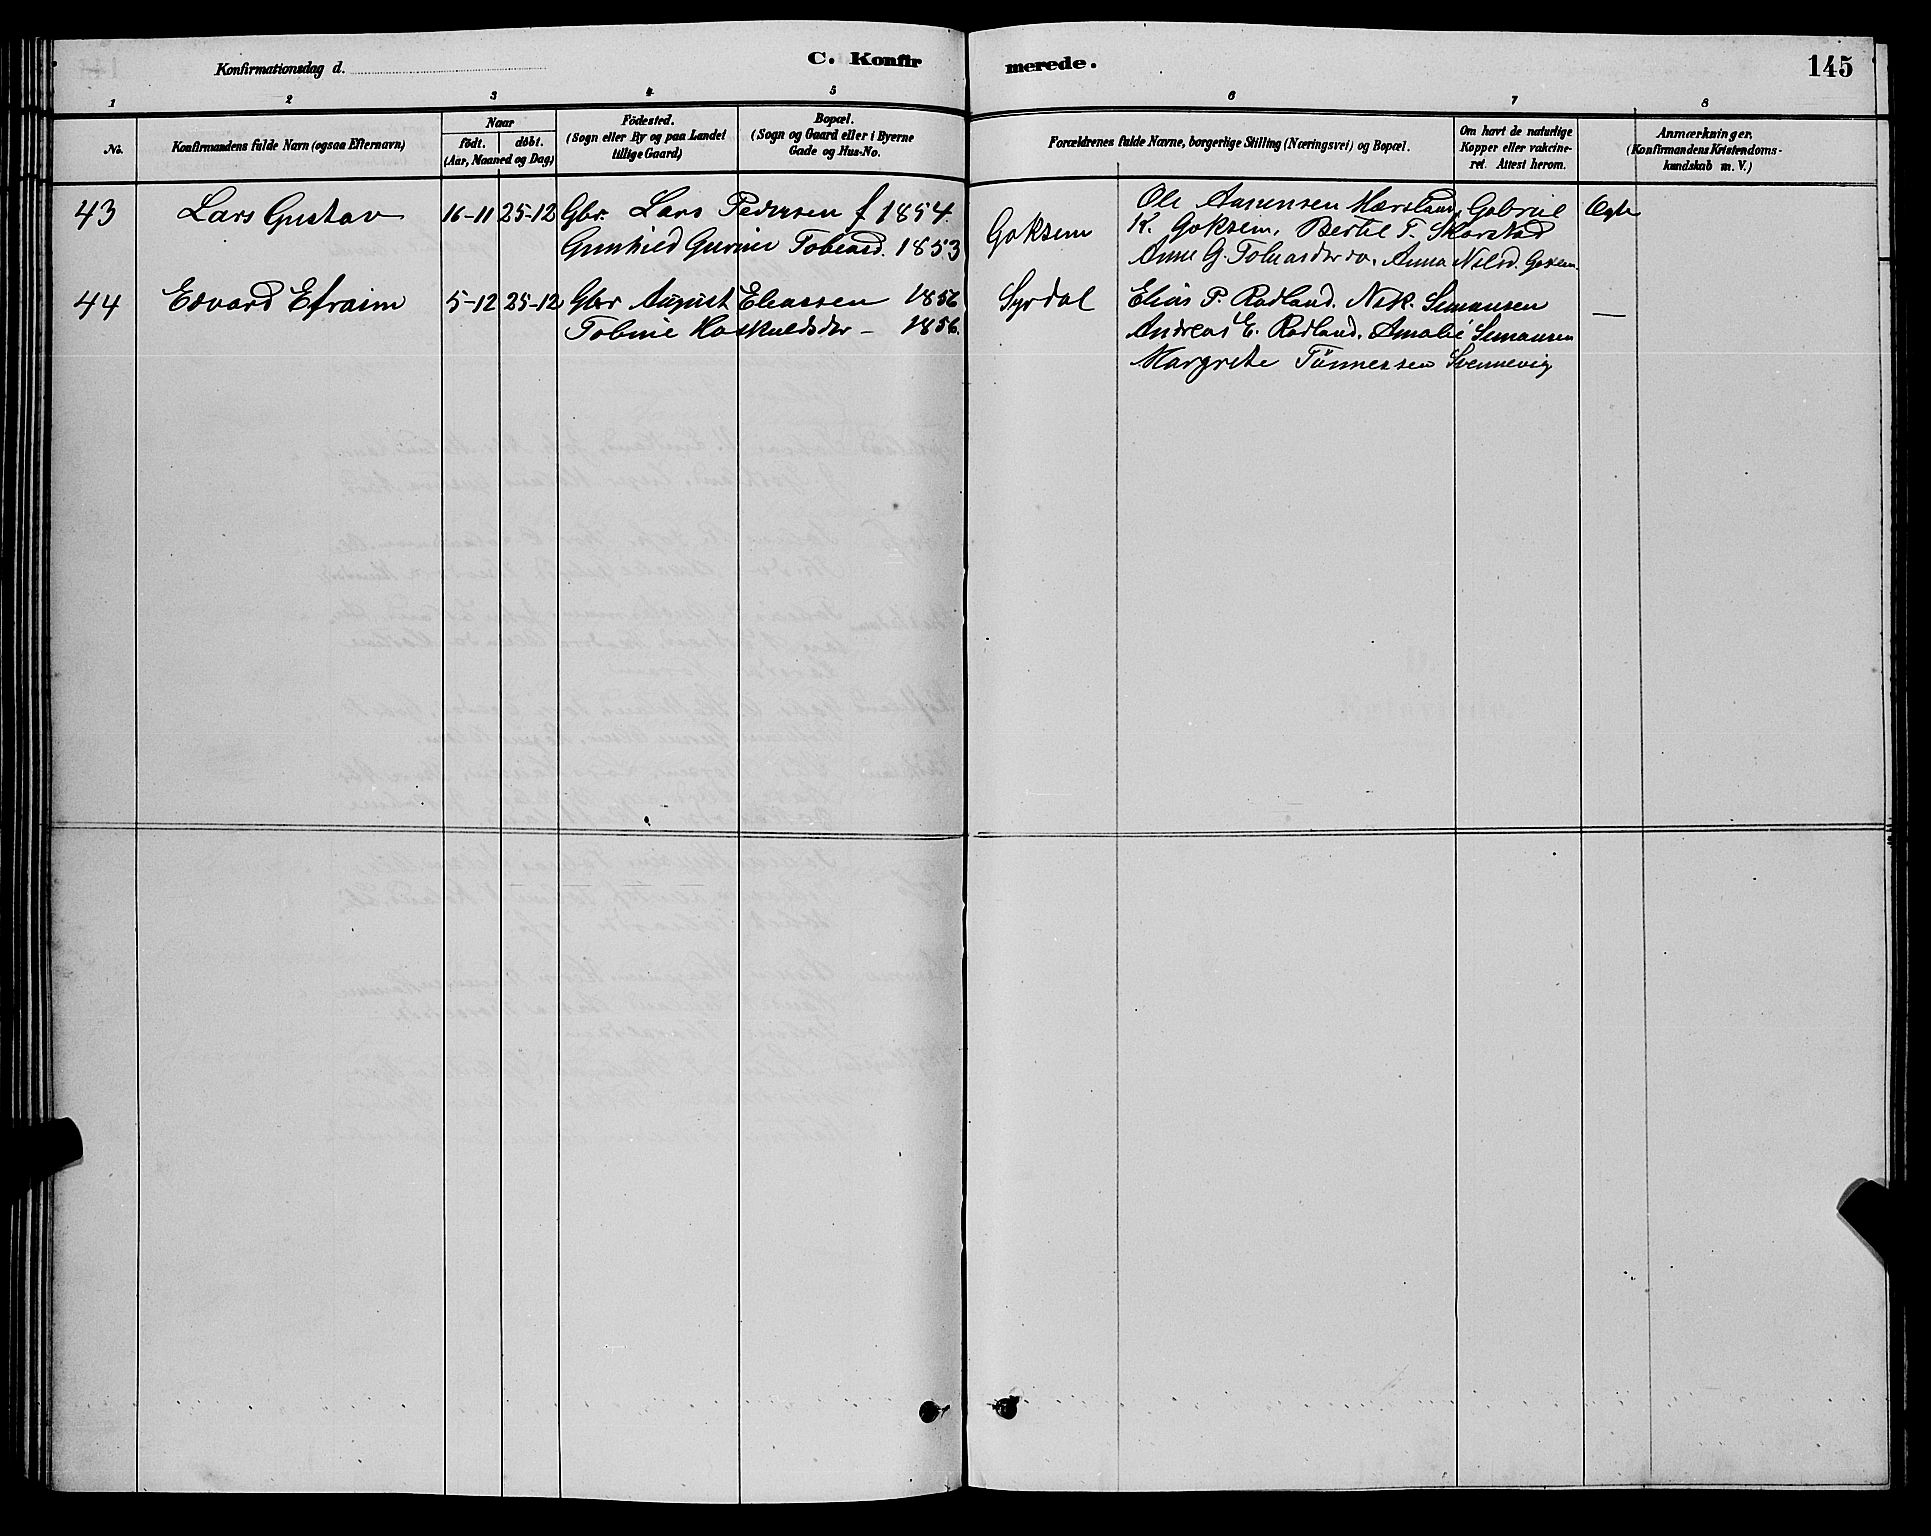 Konfirmationsdag d.
C. Konfirmerede.
145
1 2 3 4 5 6 7 8
No.
Konfirmandens fulde Navn (ogsaa Efternavn)
Naar
født. døbt.
(Aar, Maaned og Dag)
Födested.
(Sogn eller By og paa Landet
tillige Gaard)
Bopæl.
(Sogn og Gaard eller i Byerne
Gade og Hus-No.
Forældrenes fulde Navne, borgerlige Stilling (Næringsvei) og Bopæl.
Om havt de naturlige
Kopper eller vakcine-
ret. Attest herom.
Anmærkninger.
(Konfirmandens Kristendoms-
kundskab m. V.)
43 Lars Gustav 16-11 25-12 Gbr. Lars Pedersen f 1854.
Gunhild Gurine Tobiasd. 1853
Goksem
Ole Aanensen Mærsland, Gabriel
K. Goksem, Bertil T. Skarstad
Anne G. Tobiasdr do. Anna Nilsd. Goksem.
Ægte
44 Edvard Efraim 5-12 25-12 Gbr August Eliassen 1856
Tobine Haskuldsdr - 1856.
Syrdal
Elias P. Rødland. Nik. Simonsen
Andreas E. Rødland. Amalie Simonsen
Margrete Tönnessen Svennevig
—